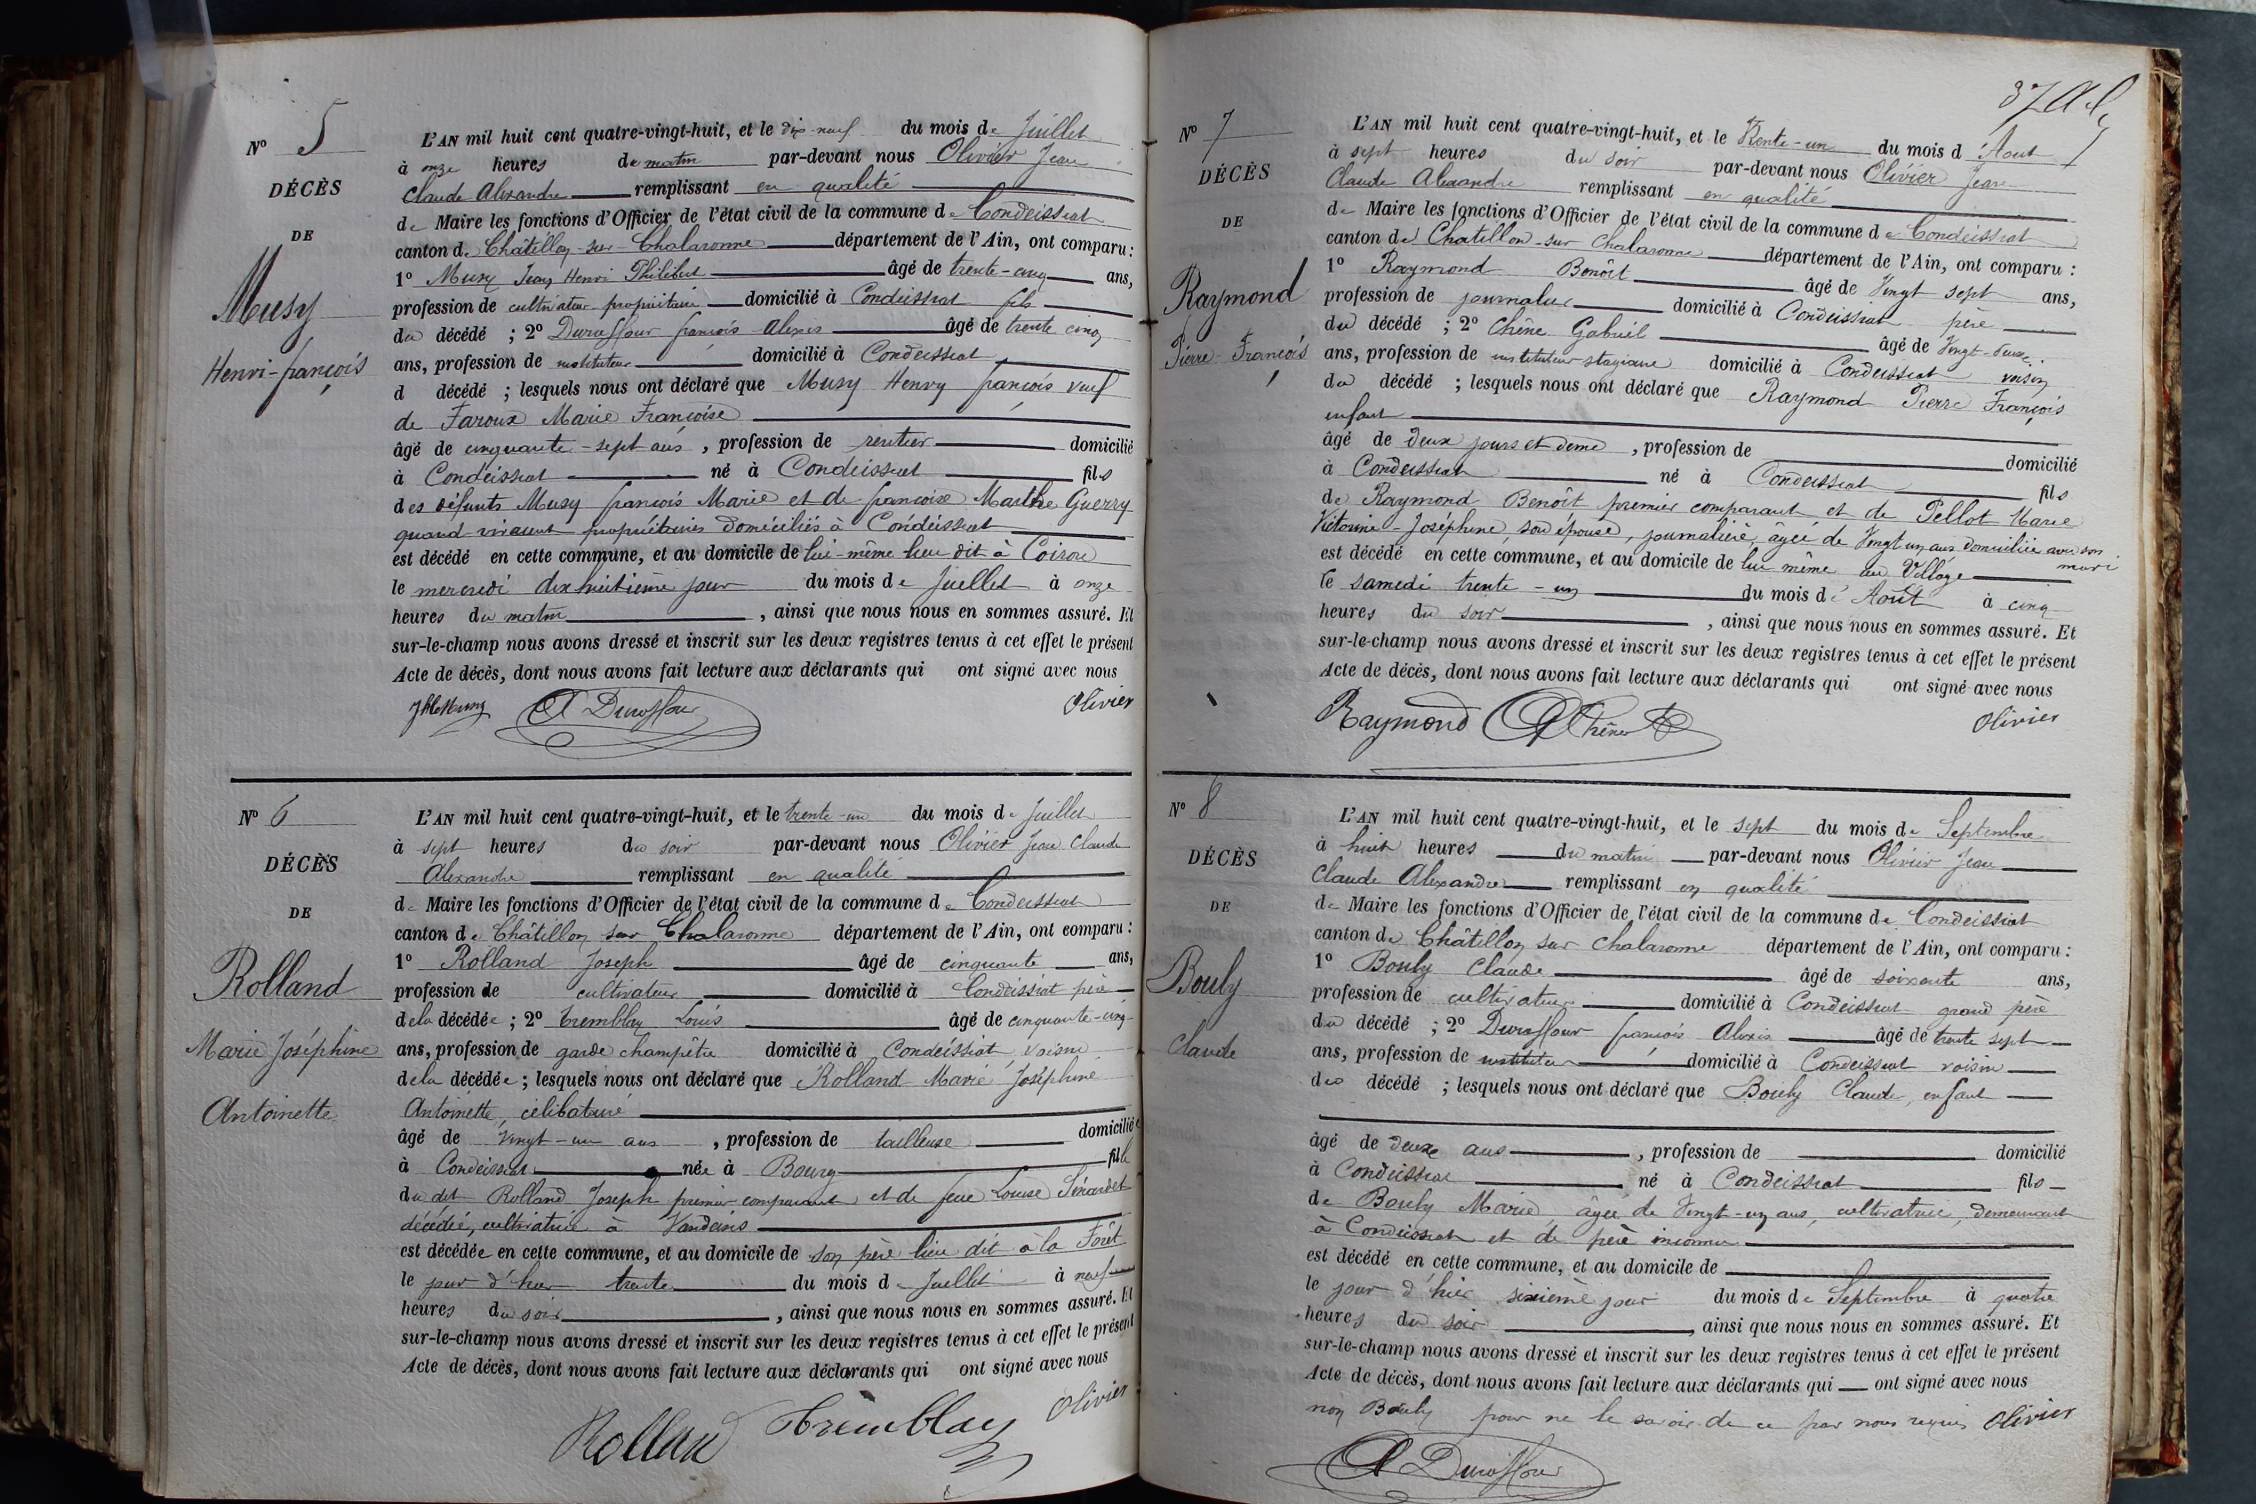 N° 5
DÉCÈS
DE
Musy
Henri-François
L'AN mil huit cent quatre-vingt-huit, et le dix-neuf du mois de Juillet
à onze heures du matin par-devant nous Olivier Jean
Claude Alexandre remplissant en qualité
de Maire les fonctions d'Officier de l'état civil de la commune de Condeissiat
canton de Châtillon-sur-Chalaronne département de l'Ain, ont comparu :
1° Musy Jean Henri Philibert âgé de trente-cinq ans,
profession de cultivateur propriétaire domicilié à Condeissiat fils
du décédé ; 2° Duraffour françois Alexis âgé de trente cinq
ans, profession de instituteur domicilié à Condeissiat
d décédé ; lesquels nous ont déclaré que Musy Henry françois veuf
de Faroux Marie Françoise
âgé de cinquante-sept ans, profession de rentier domicilié
à Condeissiat né à Condeissiat fils
des défunts Musy françois Marie et de françoise Marthe Guerry
quand vivaient propriétaires domiciliés à Condeissiat
est décédé en cette commune, et au domicile de lui-même lieu dit à Coiron
le mercredi dix huitième jour du mois de Juillet à onze
heures du matin, ainsi que nous nous en sommes assuré. Et
sur-le-champ nous avons dressé et inscrit sur les deux registres tenus à cet effet le présent
Acte de décès, dont nous avons fait lecture aux déclarants qui ont signé avec nous
A Duraffour Olivier
N° 6
DÉCÈS
DE
Rolland
Marie Joséphine
Antoinette
L'AN mil huit cent quatre-vingt-huit, et le trente-un du mois de Juillet
à sept heures du soir par-devant nous Olivier Jean Claude
Alexandre remplissant en qualité
de Maire les fonctions d'Officier de l'état civil de la commune de Condeissiat
canton de Châtillon sur Chalaronne département de l'Ain, ont comparu :
1° Rolland Joseph âgé de cinquante ans,
profession de cultivateur domicilié à Condeissiat père
de la décédée ; 2° Tremblay Louis âgé de cinquante-cinq
ans, profession de garde champêtre domicilié à Condeissiat, voisin
de la décédée ; lesquels nous ont déclaré que Rolland Marie Joséphine
Antoinette, célibataire
âgé de vingt-un ans, profession de tailleuse domiciliée
à Condeissiat née à Bourg fille
du dit Rolland Joseph premier comparant et de feue Louise Sénardet
décédée, cultivatrice à Vandeins
est décédée en cette commune, et au domicile de son père lieu dit à la Forêt
le jour d'hier trente du mois de Juillet à neuf
heures du soir, ainsi que nous nous en sommes assuré. Et
sur-le-champ nous avons dressé et inscrit sur les deux registres tenus à cet effet le présent
Acte de décès, dont nous avons fait lecture aux déclarants qui ont signé avec nous
Rolland Tremblay Olivier
37
N° 7
DÉCÈS
DE
Raymond
Pierre-François
L'AN mil huit cent quatre-vingt-huit, et le trente-un du mois d'Aout
à sept heures du soir par-devant nous Olivier Jean
Claude Alexandre remplissant en qualité
de Maire les fonctions d'Officier de l'état civil de la commune de Condeissiat
canton de Chatillon-sur Chalaronne département de l'Ain, ont comparu :
1° Raymond Benoît âgé de Vingt sept ans,
profession de journalier domicilié à Condeissiat père
du décédé ; 2° Chêne Gabriel âgé de Vingt-deux
ans, profession de instituteur stagiaire domicilié à Condeissiat voisin
du décédé ; lesquels nous ont déclaré que Raymond Pierre François
enfant
âgé de deux jours et demi, profession de domicilié
à Condeissiat né à Condeissiat fils
de Raymond Benoît premier comparant et de Pellot Marie
Victorine-Joséphine, son épouse, journalière, âgée de Vingt un ans domiciliée avec son
mari
est décédé en cette commune, et au domicile de lui même au Village
le samedi trente-un du mois de Août à cinq
heures du soir, ainsi que nous nous en sommes assuré. Et
sur-le-champ nous avons dressé et inscrit sur les deux registres tenus à cet effet le présent
Acte de décès, dont nous avons fait lecture aux déclarants qui ont signé avec nous
Raymond G Chêne Olivier
N° 8
DÉCÈS
DE
Bouly
Claude
L'AN mil huit cent quatre-vingt-huit, et le sept du mois de Septembre
à huit heures du matin par-devant nous Olivier Jean
Claude Alexandre remplissant en qualité
de Maire les fonctions d'Officier de l'état civil de la commune de Condeissiat
canton de Châtillon sur Chalaronne département de l'Ain, ont comparu :
1° Bouly Claude âgé de soixante ans,
profession de cultivateur domicilié à Condeissiat grand père
du décédé ; 2° Duraffour françois Alexis âgé de trente sept
ans, profession de instituteur domicilié à Condeissiat voisin
du décédé ; lesquels nous ont déclaré que Bouly Claude, enfant
âgé de deux ans, profession de domicilié
à Condeissiat né à Condeissiat fils
de Bouly Marie âgée de Vingt-un ans, cultivatrice, demeurant
à Condeissiat et de père inconnu
est décédé en cette commune, et au domicile de
le jour d'hier sixième jour du mois de Septembre à quatre
heures du soir, ainsi que nous nous en sommes assuré. Et
sur-le-champ nous avons dressé et inscrit sur les deux registres tenus à cet effet le présent
Acte de décès, dont nous avons fait lecture aux déclarants qui ont signé avec nous
non Bouly pour ne le savoir de ce par nous requis Olivier
A Duraffour